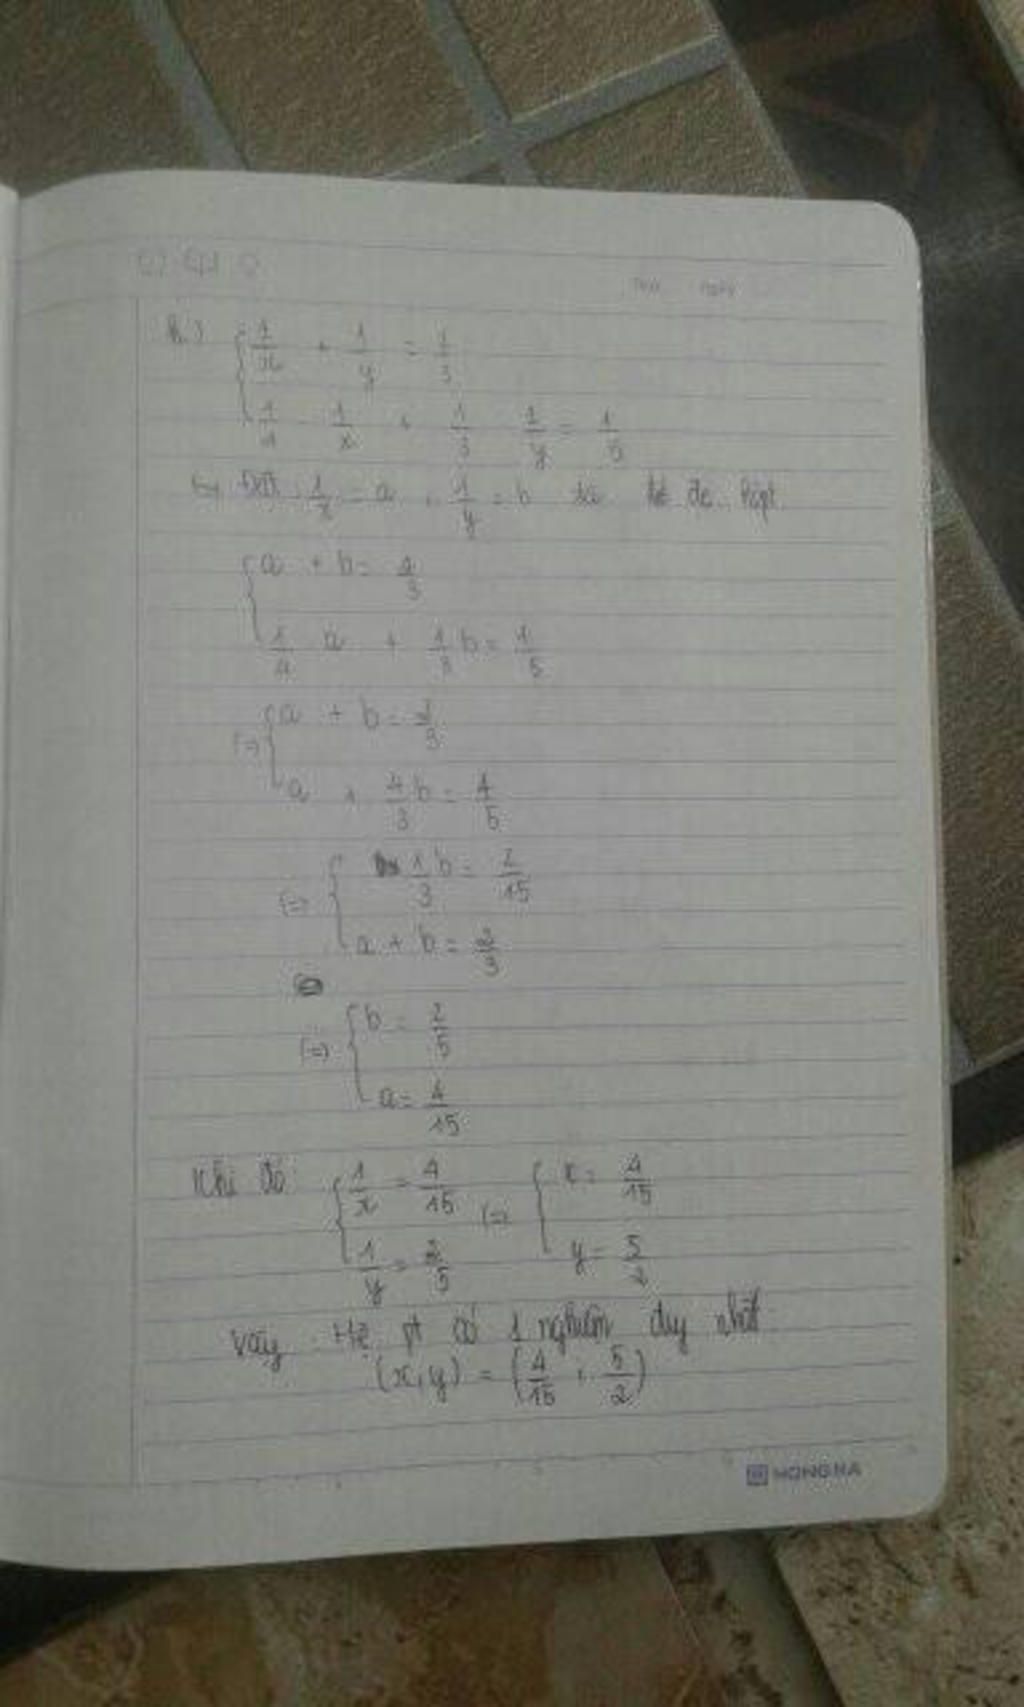 { 1/x + 1/y = 1/3
1/4 1/x + 1/3 1/y = 1/5
Đặt 1/x = a , 1/y = b ta
{ a + b = 2/3
1/4 a + 1/3 b = 1/5
(=) { a + b = 2/3
a + 4/3 b = 4/5
(=) { 1/3 b = 2/15
a + b = 2/3
(=) { b = 2/5
a = 4/15
Khi đó: { 1/x = 4/15 (=) { x = 4/15
1/y = 2/5 y = 5/2
Vậy Hệ pt có 1 nghiệm duy nhất
(x,y) = (4/15 ; 5/2)
HONG HA